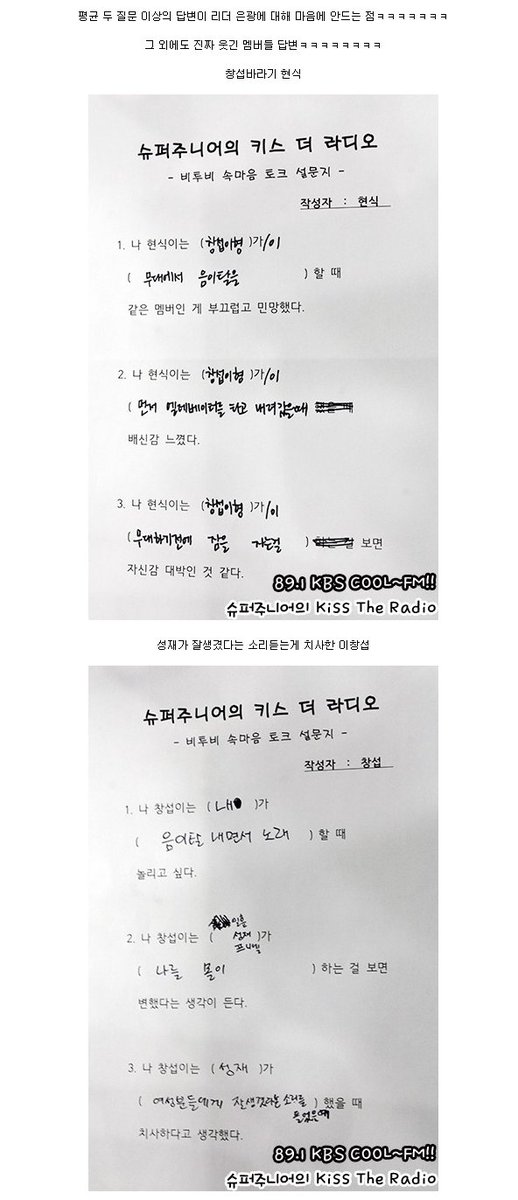 평균 두 질문 이상의 답변이 리더 은광에 대해 마음에 안드는 점ㅋㅋㅋㅋㅋㅋㅋ
그 외에도 진짜 웃긴 멤버들 답변ㅋㅋㅋㅋㅋㅋㅋㅋ
창섭바라기 현식
슈퍼주니어의 키스 더 라디오
- 비투비 속마음 토크 설문지 -
작성자 : 현식
1. 나 현식이는 (창섭이형)가/이
( 무대에서 음이탈을 ) 할 때
같은 멤버인 게 부끄럽고 민망했다.
2. 나 현식이는 (창섭이형)가/이
(먼저 엘레베이터를 타고 내려갔을때
배신감 느꼈다.
3. 나 현식이는 (창섭이형)가/이
(무대하기전에 잠을 자는걸 ) 보면
자신감 대박인 것 같다.
89.1 KBS COOL~FM!!
슈퍼주니어의 Kiss The Radio
성재가 잘생겼다는 소리듣는게 치사한 이창섭
슈퍼주니어의 키스 더 라디오
- 비투비 속마음 토크 설문지 -
작성자 : 창섭
1. 나 창섭이는 (내 )가
( 음이탈 내면서 노래 ) 할 때
놀리고 싶다.
일훈
2. 나 창섭이는 ( 성재 )가
프니엘
( 나를 몰이 ) 하는 걸 보면
변했다는 생각이 든다.
3. 나 창섭이는 ( 성재 )가
( 여성분들에게 잘생겼다는 소리를 ) 했을 때
들었을때
치사하다고 생각했다.
89.1 KBS COOL~FM!!
슈퍼주니어의 Kiss The Radio